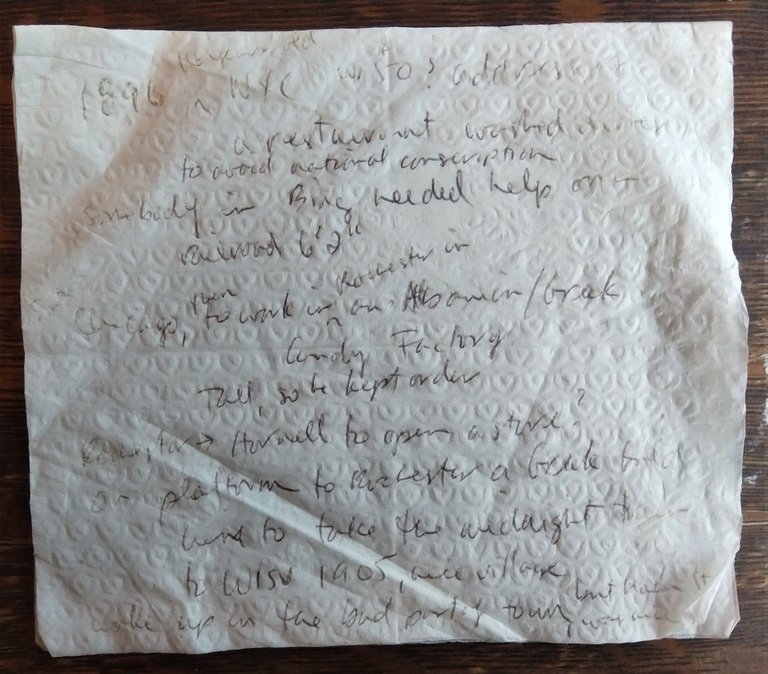 16 years old
1896 in NYC w/ sto? address
a restaurant washed dishes
to avoid national conscription
Somebody in Bing needed help on
railroad 6'2"
then Rochester in
Chicago, to work in an Albanian/Greek
Candy Factory
Tall, so he kept order
Rochester → Hornell to open a store?
on platform to Rochester a Greek
him to take the midnight train
to 1905, nice village
woke up in the bad part of town, but Main St